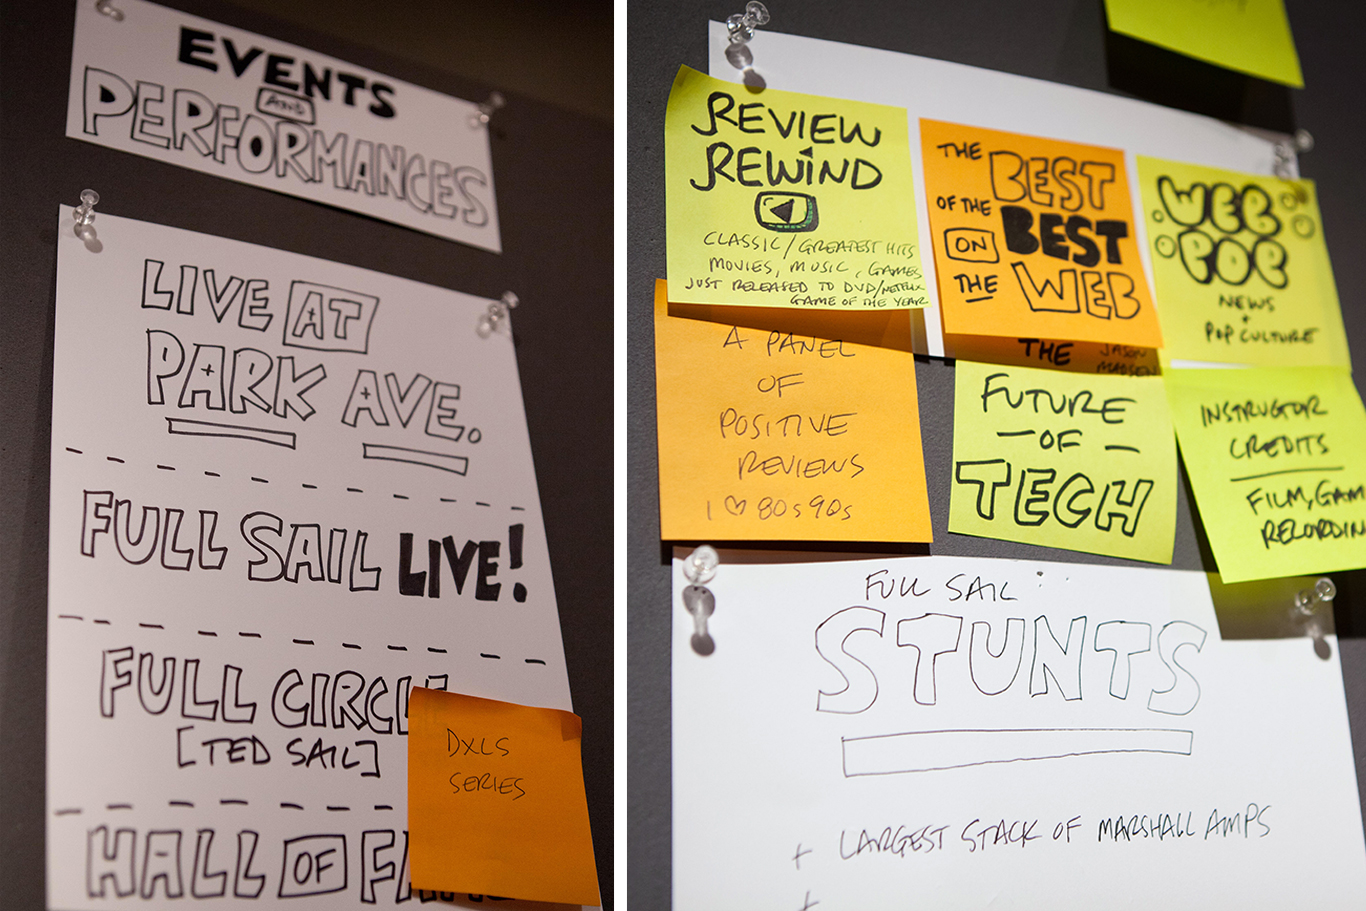 EVENTS
AND
PERFORMANCES
LIVE AT
PARK AVE.
FULL SAIL LIVE!
FULL CIRCLE
[TED SAIL]
DXLS
SERIES
HALL OF FAME
REVIEW
REWIND
CLASSIC/GREATEST HITS
MOVIES, MUSIC, GAMES
JUST RELEASED TO DVD/NETFLIX
GAME OF THE YEAR
THE BEST
OF THE BEST
ON
THE WEB
WEB
POP
NEWS
+
POP CULTURE
A PANEL
OF
POSITIVE
REVIEWS
I ♡ 80s 90s
THE
JASON
MADSEN
FUTURE
- OF -
TECH
INSTRUCTOR
CREDITS
FILM, GAM
RECORDIN
FULL SAIL:
STUNTS
+ LARGEST STACK OF MARSHALL AMPS
+